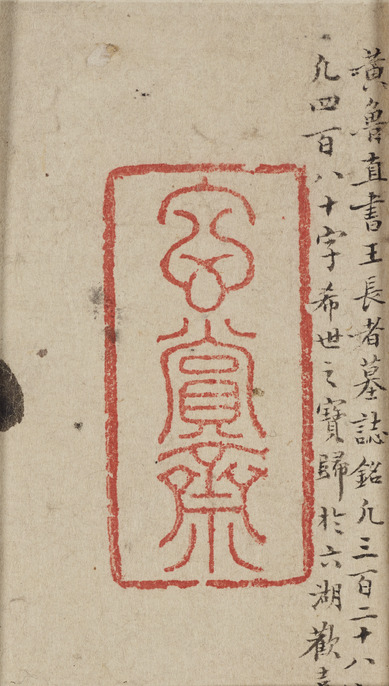 黃魯直書王長者墓誌銘凡三百二十八
凡四百八十字希世之寶歸於六湖歡
玄賞齋